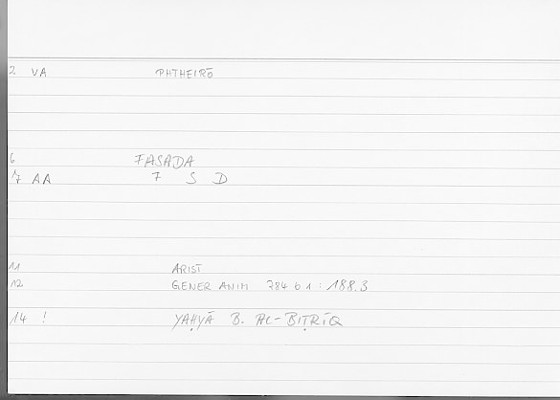 2 VA PHTHEIRŌ
6 FASADA
7 AA F S D
11 ARIST
12 GENER ANIM 784 b 1 : 188.3
14 ! YAḤYĀ B. AL-BIṬRĪQ